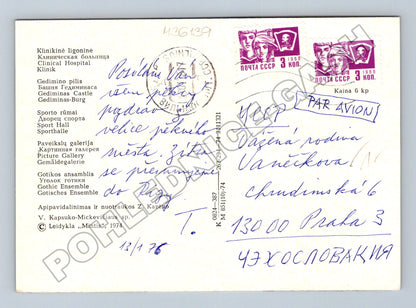 436139
Klinikinė ligoninė
Клиническая больница
Clinical Hospital
Klinik
Gedimino pilis
Башня Гедиминаса
Gediminas Castle
Gediminas-Burg
Sporto rūmai
Дворец спорта
Sport Hall
Sporthalle
Paveikslų galerija
Картинная галерея
Picture Gallery
Gemäldegalerie
Gotikos ansamblis
Уголок готики
Gothic Ensemble
Gotisches Ensemble
Apipavidalinimas ir nuotraukos Z. Kazėno
V. Kapsuko-Mickevičiaus ap.
© Leidykla „Mintis“, 1974
Posílám Vám
všem pěkný
pozdrav z
velice pěkného
města. Zítra
se přesunujeme
do Rigy
T.
13/1 76
ПОЧТА СССР 3 КОП.
ПОЧТА СССР 3 КОП.
Kaina 6 kp
PAR AVION
ČSSR
Vážená rodina
Vaněčkova
Chrudimská 6
13000 Praha 3
ЧЭХОСЛОВАКИЯ
POHLEDNICE-SAH